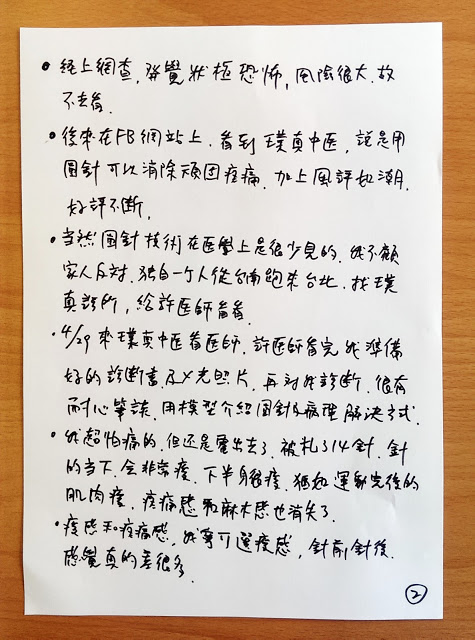 • 經上網查,發覺狀極恐怖,風險很大.故
不去看.
• 後來在FB網站上.看到璞真中医,說是用
圓針可以消除頑固疼痛.加上風評如潮.
好評不斷.
• 当然圓針技術在医學上是很少見的.我不顧
家人反対.獨自一个人從台南跑來台北.找璞
真診所,給許医師看看.
• 4/29來璞真中医看医師.許医師看完我準備
好的診断書及X光照片.再对我診断.很有
耐心筆談.用模型介紹圓針及病理解決方式.
• 我超怕痛的.但还是電出去了.被札了14針.針
的当下.会非常痠.下半身很痠.猶如運動完後的
肌肉痠.疼痛感和麻木感也消失了.
• 痠感和疼痛感,我寧可選痠感,針前針後.
感覺真的差很多.
②